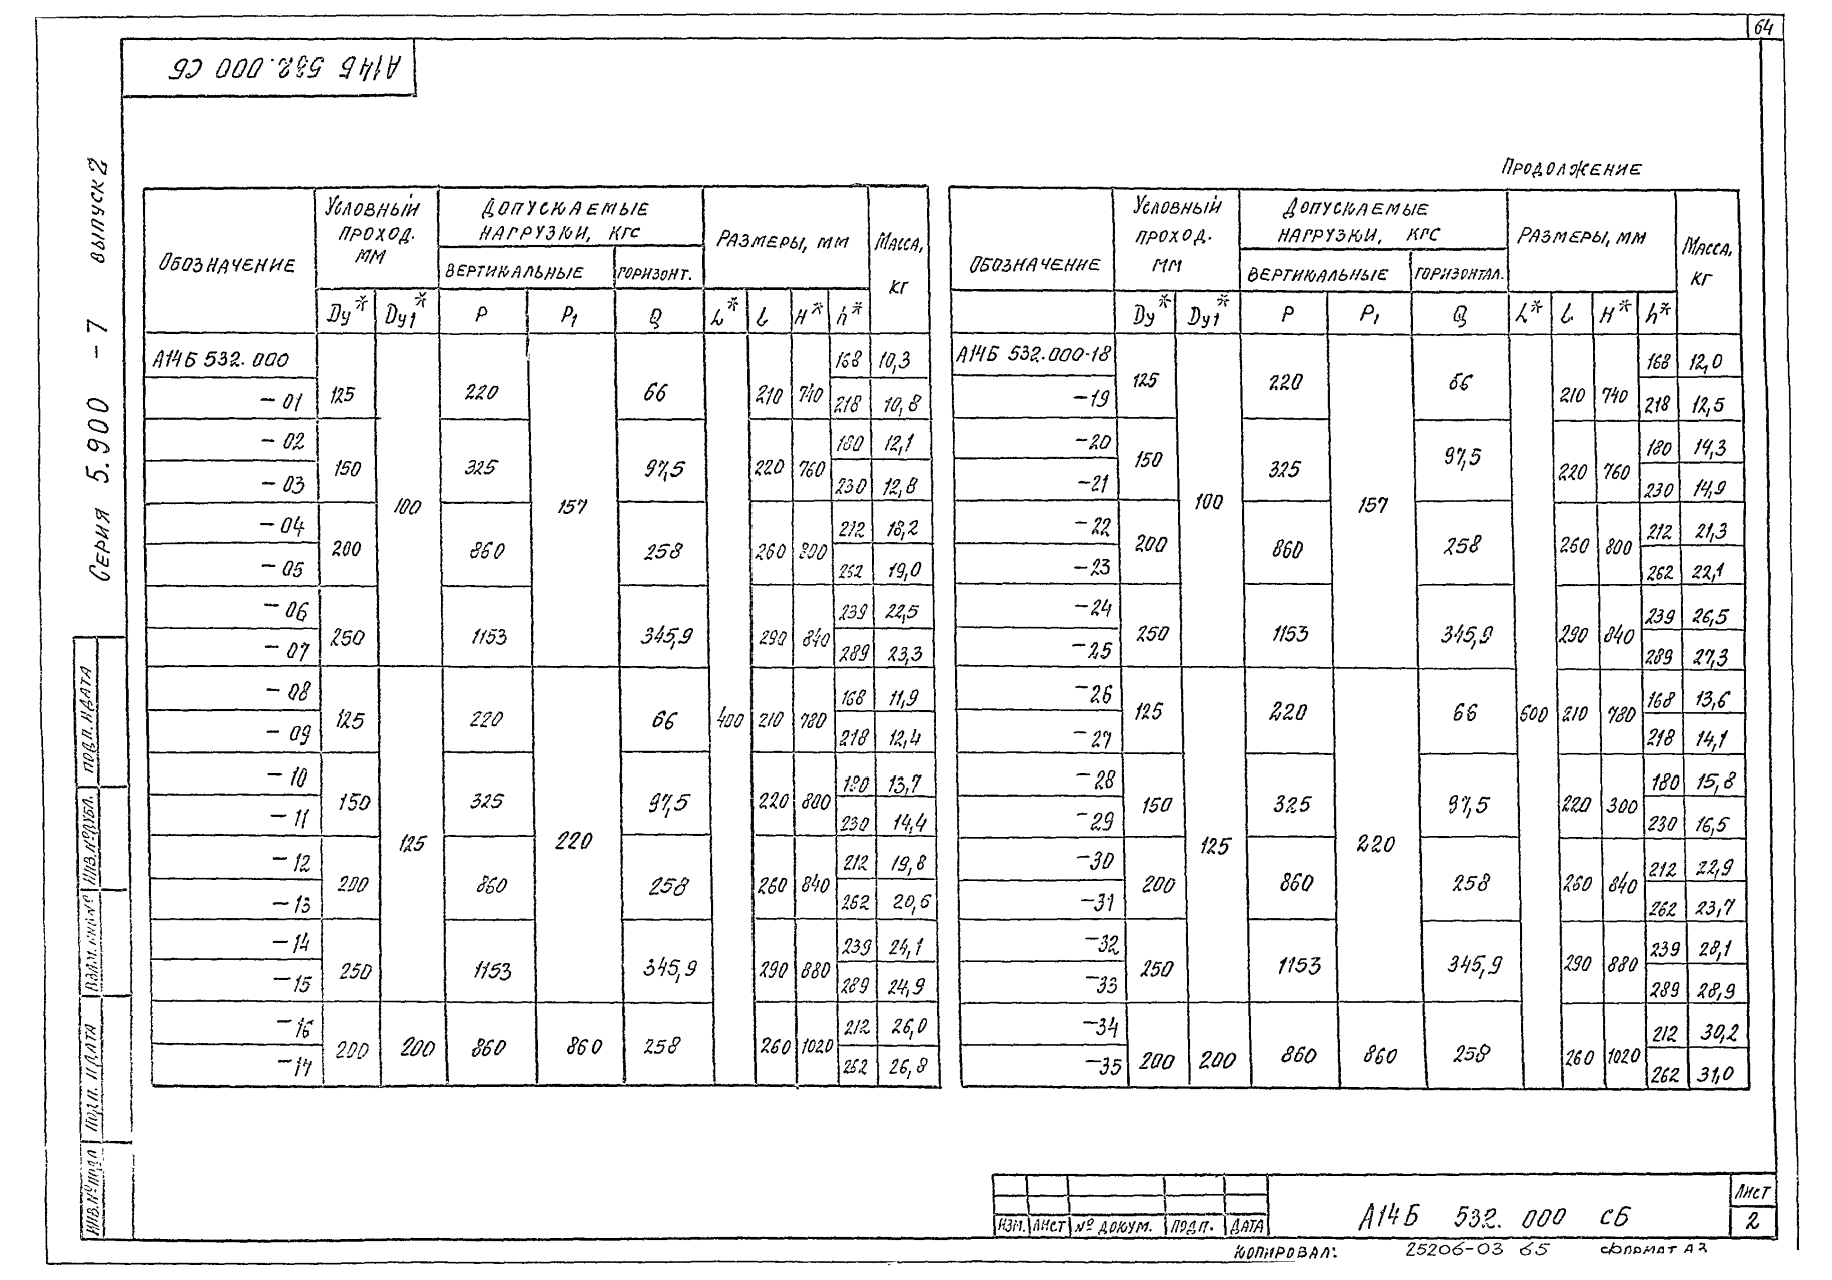 64
А14Б 532.000 СБ
Серия 5.900 - 7 выпуск 2
Продолжение
Обозначение | Условный проход. мм | Допускаемые нагрузки, кгс | Размеры, мм | Масса, кг
Вертикальные | Горизонт.
Dy* | Dy1* | P | P1 | Q | L* | l | H* | h*
А14Б 532.000 | 125 | 100 | 220 | 157 | 66 | 400 | 210 | 740 | 168 | 10,3
- 01 | 218 | 10,8
- 02 | 150 | 325 | 97,5 | 220 | 760 | 180 | 12,1
- 03 | 230 | 12,8
- 04 | 200 | 860 | 258 | 260 | 800 | 212 | 18,2
- 05 | 262 | 19,0
- 06 | 250 | 1153 | 345,9 | 290 | 840 | 239 | 22,5
- 07 | 289 | 23,3
- 08 | 125 | 125 | 220 | 220 | 66 | 210 | 780 | 168 | 11,9
- 09 | 218 | 12,4
- 10 | 150 | 325 | 97,5 | 220 | 800 | 180 | 13,7
- 11 | 230 | 14,4
- 12 | 200 | 860 | 258 | 260 | 840 | 212 | 19,8
- 13 | 262 | 20,6
- 14 | 250 | 1153 | 345,9 | 290 | 880 | 239 | 24,1
- 15 | 289 | 24,9
- 16 | 200 | 200 | 860 | 860 | 258 | 260 | 1020 | 212 | 26,0
- 17 | 262 | 26,8
Обозначение | Условный проход. мм | Допускаемые нагрузки, кгс | Размеры, мм | Масса, кг
Вертикальные | Горизонтал.
Dy* | Dy1* | P | P1 | Q | L* | l | H* | h*
А14Б 532.000-18 | 125 | 100 | 220 | 157 | 66 | 500 | 210 | 740 | 168 | 12,0
-19 | 218 | 12,5
-20 | 150 | 325 | 97,5 | 220 | 760 | 180 | 14,3
-21 | 230 | 14,9
-22 | 200 | 860 | 258 | 260 | 800 | 212 | 21,3
-23 | 262 | 22,1
-24 | 250 | 1153 | 345,9 | 290 | 840 | 239 | 26,5
-25 | 289 | 27,3
-26 | 125 | 125 | 220 | 220 | 66 | 210 | 780 | 168 | 13,6
-27 | 218 | 14,1
-28 | 150 | 325 | 97,5 | 220 | 300 | 180 | 15,8
-29 | 230 | 16,5
-30 | 200 | 860 | 258 | 260 | 840 | 212 | 22,9
-31 | 262 | 23,7
-32 | 250 | 1153 | 345,9 | 290 | 880 | 239 | 28,1
-33 | 289 | 28,9
-34 | 200 | 200 | 860 | 860 | 258 | 260 | 1020 | 212 | 30,2
-35 | 262 | 31,0
Инв.№ подл | Подп. и дата | Взам. инв № | Инв.№ дубл. | Подп. и дата
Изм. | Лист | № докум. | Подп. | Дата
А14Б 532. 000 СБ
Лист
2
Копировал:
25206-03 65
Формат А3